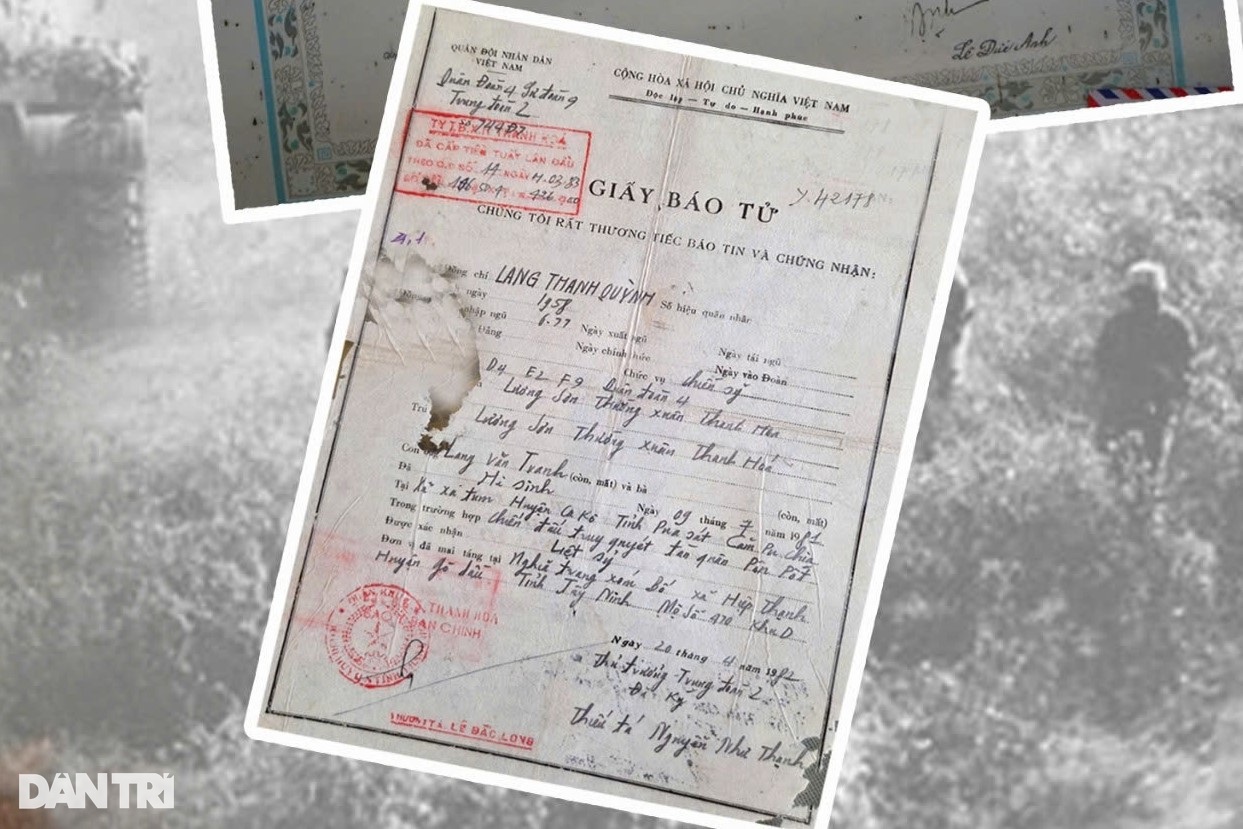 Lê Đức Anh
QUÂN ĐỘI NHÂN DÂN
VIỆT NAM
Quân Đoàn 4 Sư đoàn 9
Trung đoàn 2
CỘNG HÒA XÃ HỘI CHỦ NGHĨA VIỆT NAM
Độc lập — Tự do — Hạnh phúc
THANH HOÁ
ĐÃ CẤP TIỀN TUẤT LẦN ĐẦU
THEO SỐ 14 NGÀY 11.03.83
GIẤY BÁO TỬ
Y.42178
CHÚNG TÔI RẤT THƯƠNG TIẾC BÁO TIN VÀ CHỨNG NHẬN:
đồng chí LANG THANH QUỲNH Số hiệu quân nhân
ngày 1958
nhập ngũ 6.77 Ngày xuất ngũ Ngày tái ngũ
Đảng Ngày chính thức Ngày vào Đoàn
Chức vụ chiến sỹ
D4 E2 F9 Quân đoàn 4
Lương Sơn Thường xuân Thanh Hóa
Trú Lương Sơn Thường xuân Thanh Hoá
Con ông Lang Văn Tranh (còn, mất) và bà (còn, mất)
Đã Hi sinh Ngày 09 tháng 7 năm 1981
Tại xã tum Huyện Ca Kô Tỉnh Pua sát Căm Pu Chia
Trong trường hợp chiến đấu truy quyét tàn quân Pôn Pốt
Được xác nhận Liệt sỹ
Đơn vị đã mai táng tại Nghĩa trang xóm Bố xã Hiệp Thạnh
Huyện gò dầu Tỉnh Tây Ninh Mộ Số 470 Khu D
THANH HOÁ
Ngày 20 tháng 4 năm 1982
Thủ trưởng Trung đoàn 2
Đã Ký
Thiếu tá Nguyễn Như Thạnh
LÊ ĐẮC LONG
DÂN TRÍ